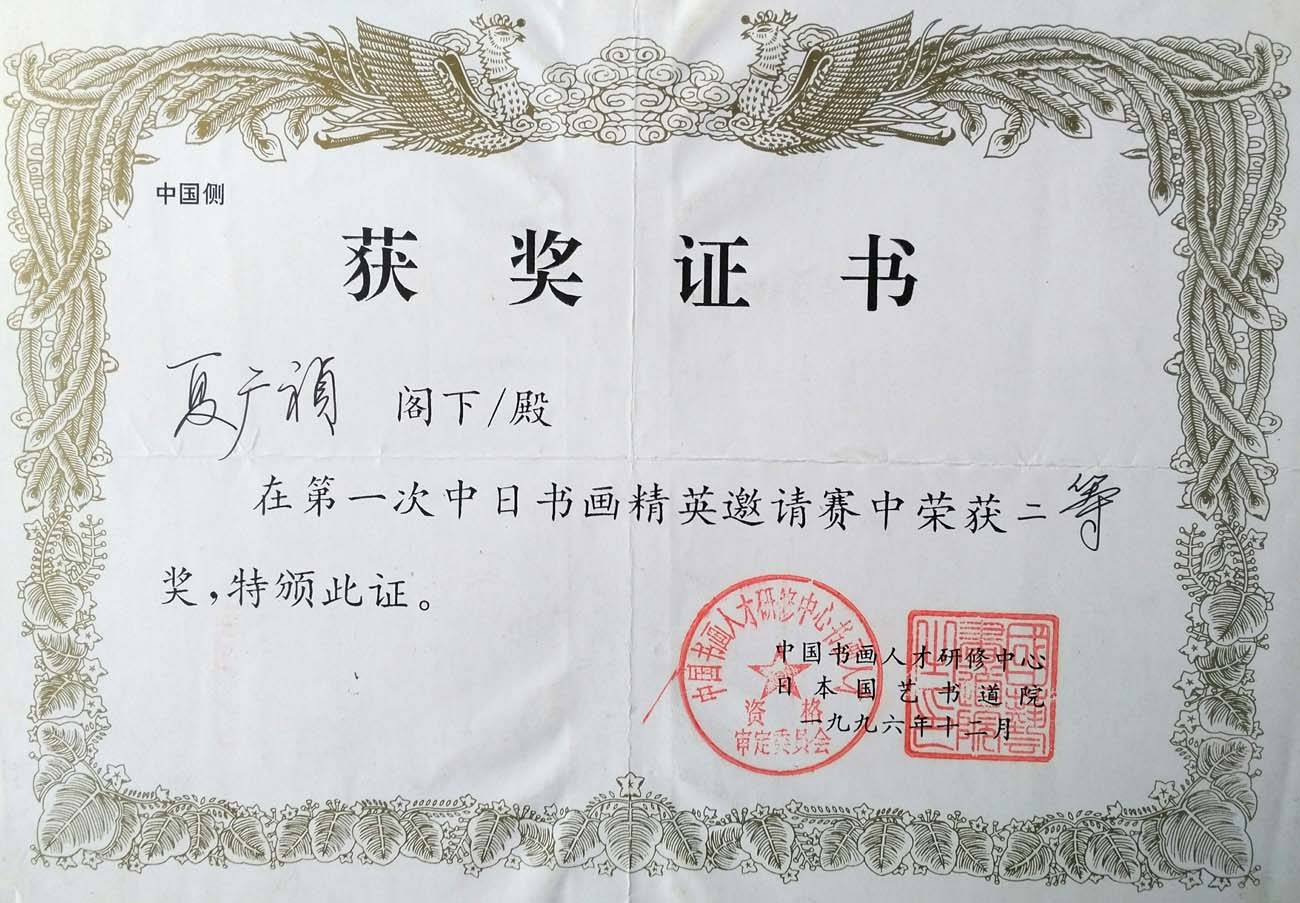 中国侧
获奖证书
夏广祯 阁下/殿
在第一次中日书画精英邀请赛中荣获二等
奖，特颁此证。
中国书画人才研修中心
日本国艺书道院
一九九六年十二月
资格
审定委员会